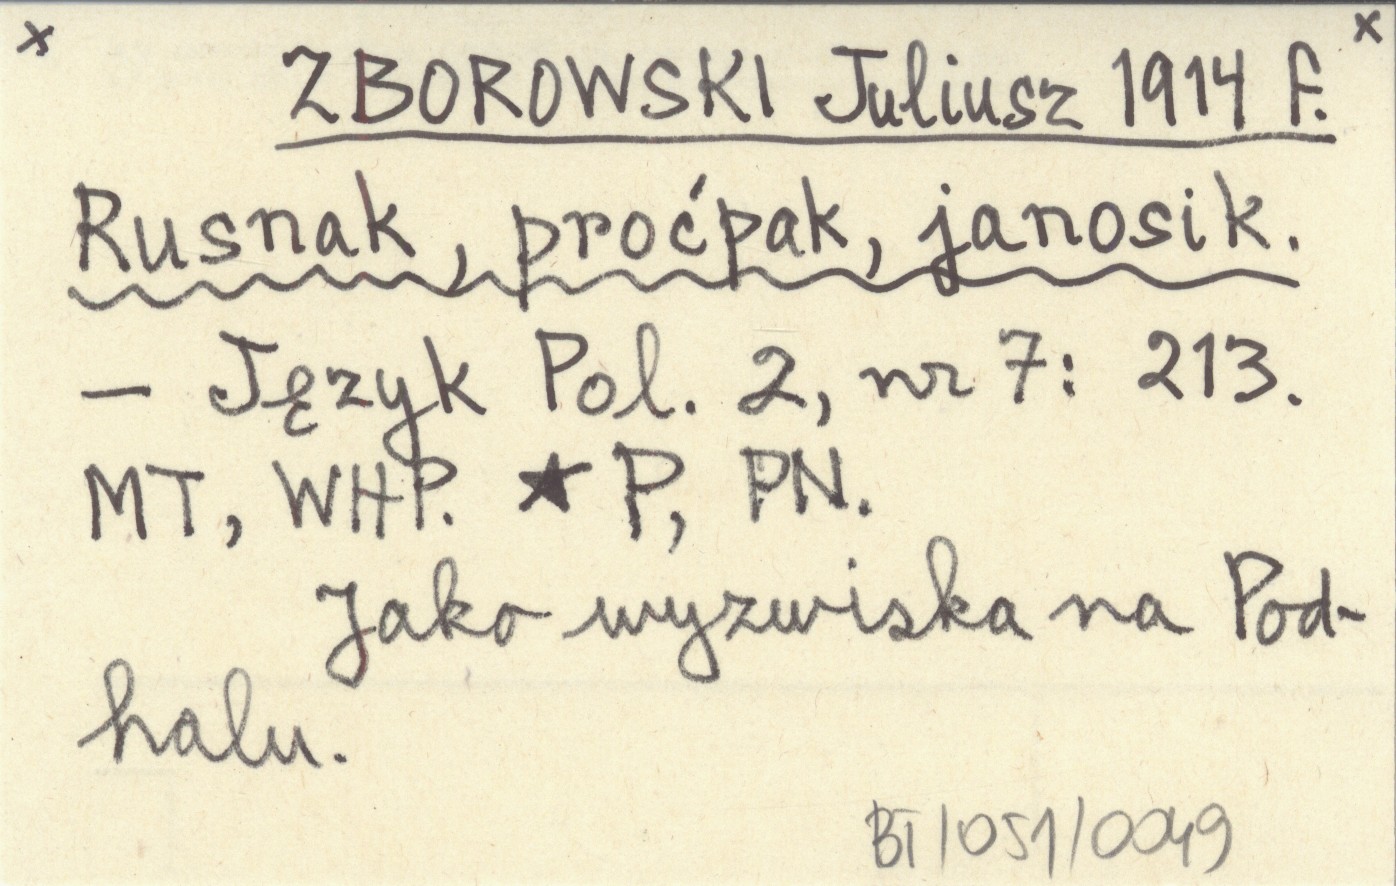 x x
ZBOROWSKI Juliusz 1914 f.
Rusnak, proćpak, janosik.
– Język Pol. 2, nr 7: 213.
MT, WHP. ★ P, PN.
Jako wyzwiska na Pod-
halu.
BT/051/0049